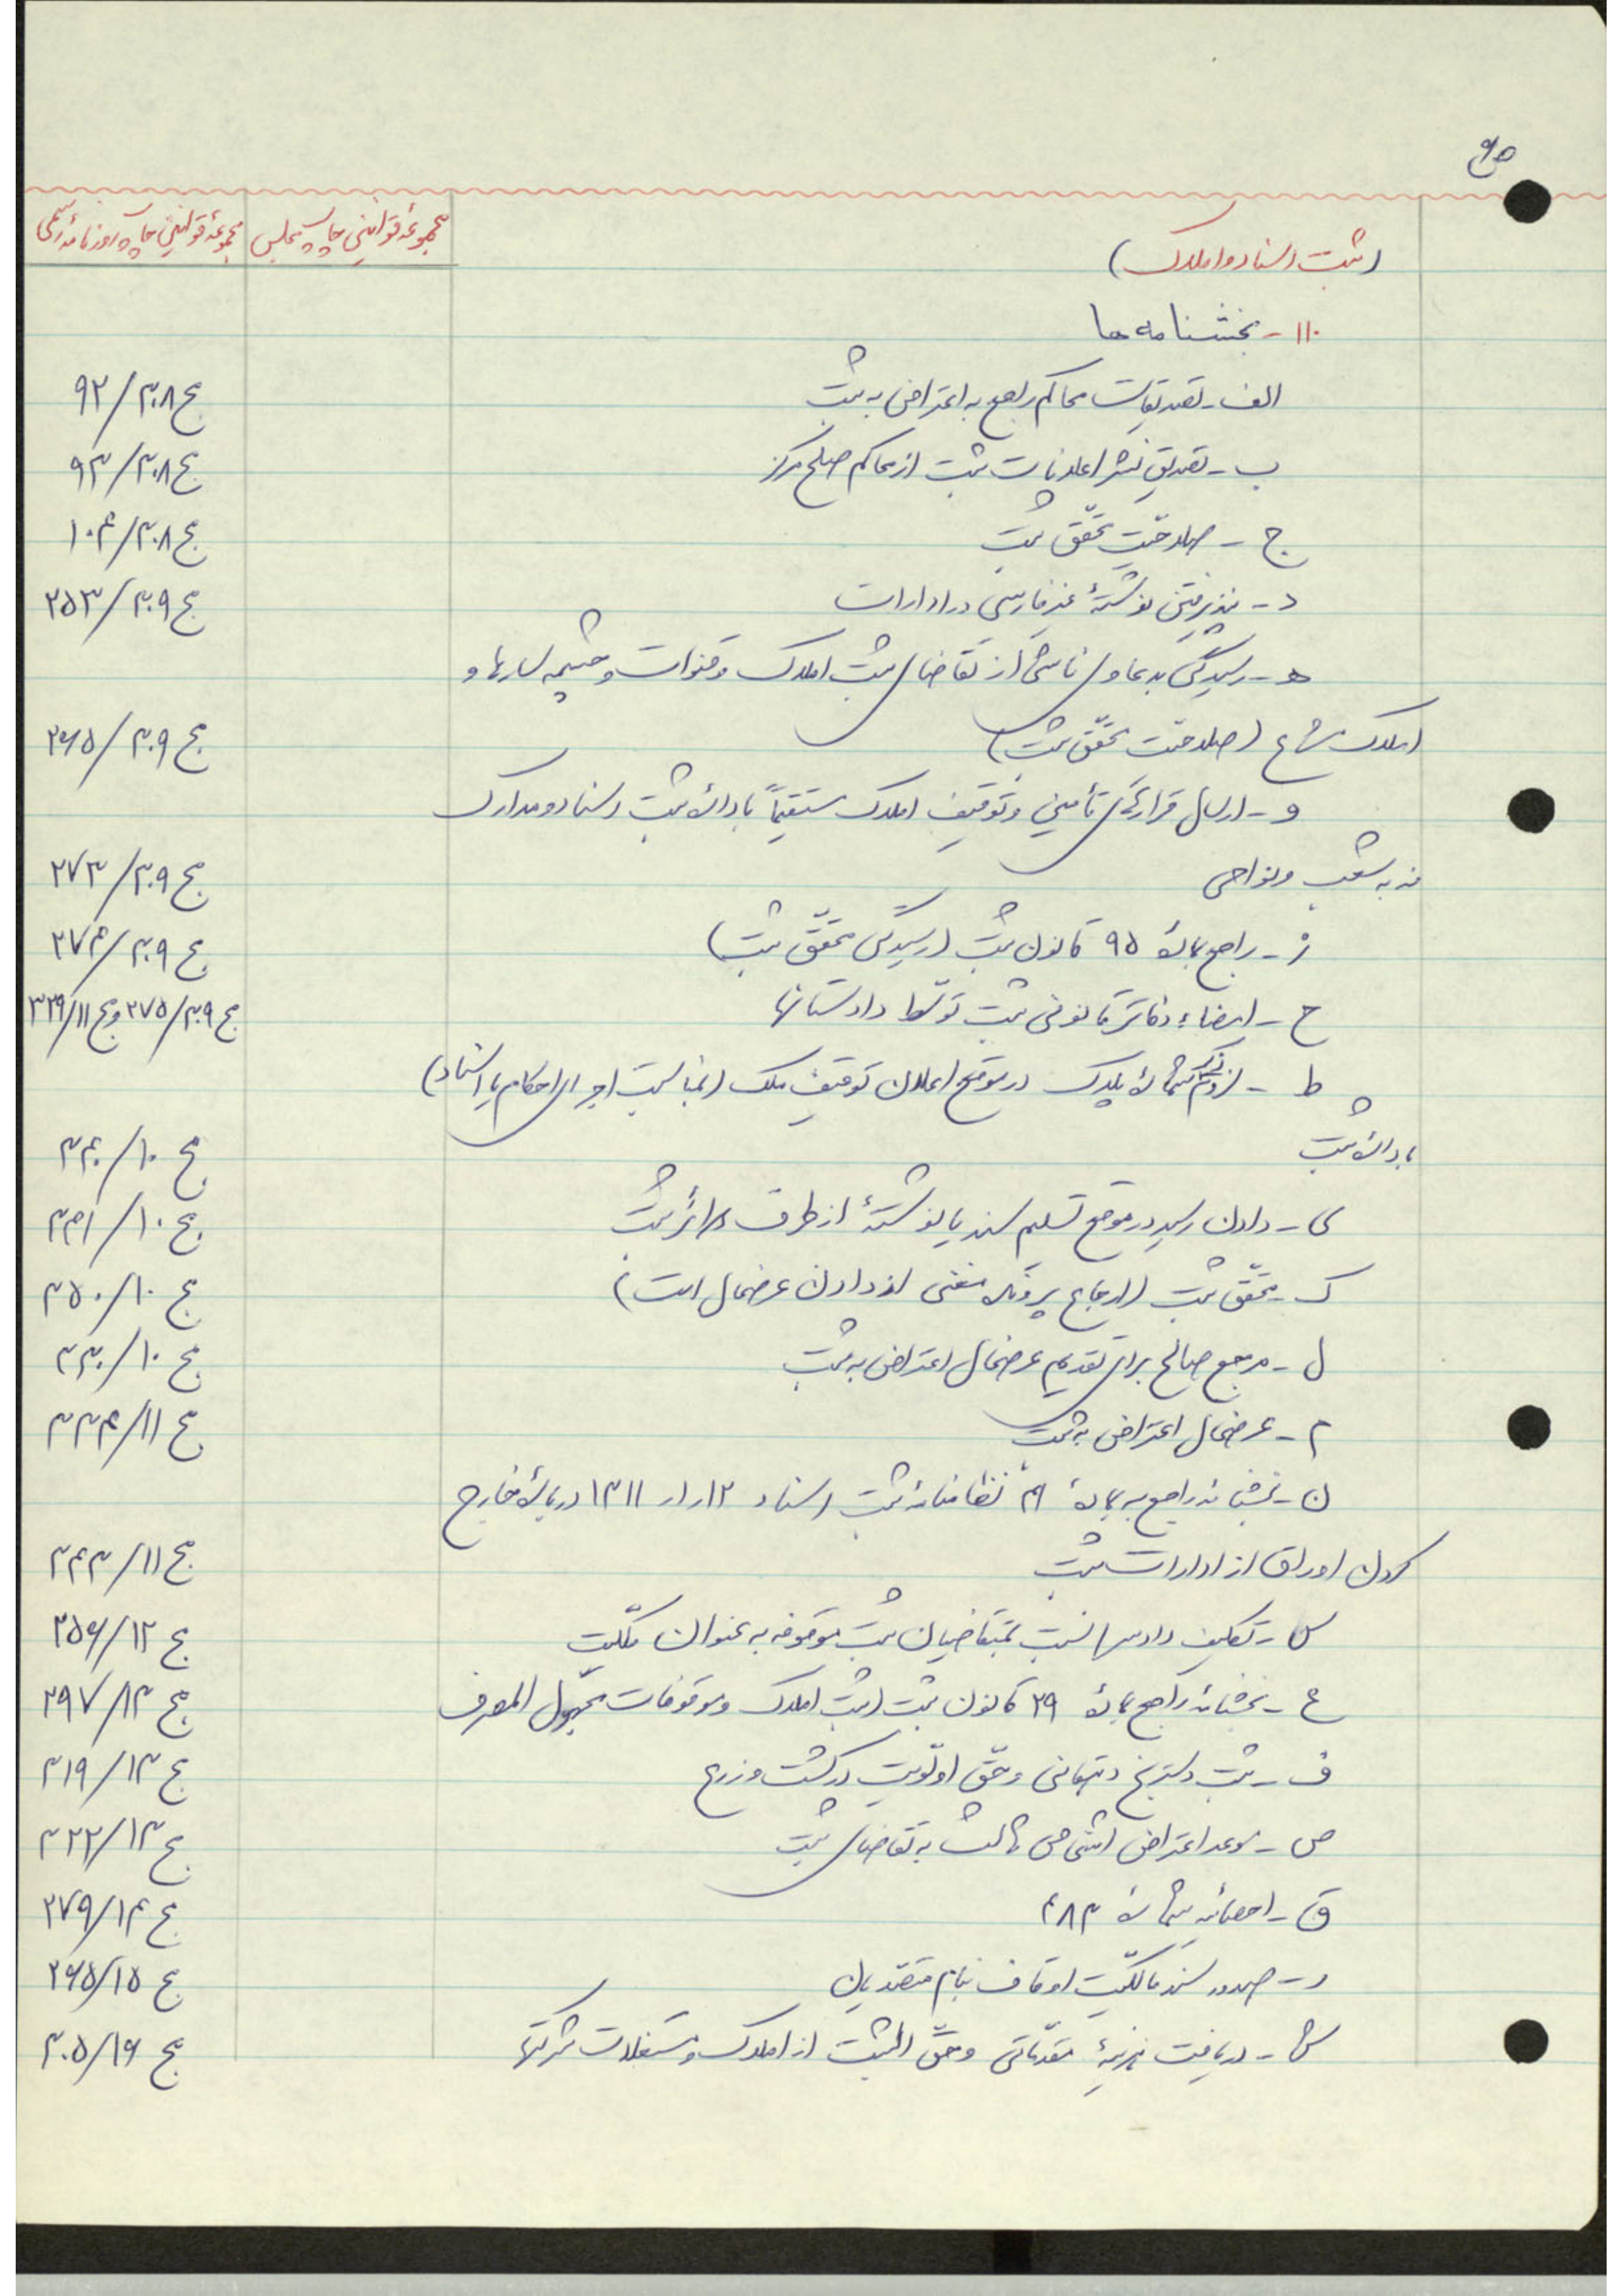 ۶۵
مجموعهٔ قوانین چاپ مجلس
مجموعهٔ قوانین چاپ روزنامهٔ رسمی
(ثبت اسناد و املاک)
۱۱۰- بخشنامه ها
الف- تصدیقات محاکم راجع به اعتراض به ثبت
ج ۳۰۸/۹۲
ب- تصدیق نشر اعلانات ثبت از محاکم صلح مرکز
ج ۳۰۸/۹۳
ج- صلاحیّت محقّق ثبت
ج ۳۰۸/۱۰۴
د- پذیرفتن نوشتهٔ غیر فارسی در ادارات
ج ۳۰۹/۲۵۳
هـ- رسیدگی بدعاوی ناشی از تقاضای ثبت املاک و قنوات و چشمه سارها و
املاک مشاع (صلاحیّت محقّق ثبت)
ج ۳۰۹/۲۶۵
و- ارسال قرارهای تأمینی و توقیف املاک مستقیماً بادارهٔ ثبت اسناد و مدارک
نه به شعب و نواحی
ج ۳۰۹/۲۷۳
ز- راجع بمادهٔ ۹۵ قانون ثبت (رسیدگی محقّق ثبت)
ج ۳۰۹/۲۷۴
ح- امضاء دفاتر قانونی ثبت توسّط دادستانها
ج ۳۰۹/۲۷۵ و ج ۱۱/۳۳۹
ط- لزوم ذکر شمارهٔ پلاک در موقع اعلان توقیف ملک (بمناسبت اجرای احکام یا اسناد)
بادارهٔ ثبت
ج ۱۰/۳۴۰
ی- دادن رسید در موقع تسلیم سند یا نوشتهٔ از طرف دوائر ثبت
ج ۱۰/۳۴۱
ک- محقّق ثبت (ارجاع پرونده مغنی از دادن عرضحال است)
ج ۱۰/۳۵۰
ل- مرجع صالح برای تقدیم عرضحال اعتراض به ثبت
ج ۱۰/۳۳۰
م- عرضحال اعتراض به ثبت
ج ۱۱/۳۳۴
ن- بخشنامه راجع به مادهٔ نظامنامهٔ ثبت اسناد ۱۳۱۱ دربارهٔ خارج
کردن اوراق از ادارات ثبت
ج ۱۱/۳۴۳
س- تکلیف دادسراها نسبت بمتقاضیان ثبت موقوفه به عنوان ملکیّت
ج ۱۲/۲۵۶
ع- بخشنامه راجع بمادهٔ ۲۹ قانون ثبت (ثبت املاک و موقوفات مجهول المصرف
ج ۱۳/۲۹۷
ف- ثبت دسترنج دهقانی و حقّ اولویّت در کشت و زرع
ج ۱۳/۳۱۹
ص- موعد اعتراض اشخاص ثالث به تقاضای ثبت
ج ۱۳/۳۲۲
ق- احصائیه شمارهٔ ۴۸۳
ج ۱۴/۲۷۹
ر- صدور سند مالکیّت اوقاف بنام متصدیان
ج ۱۵/۲۶۵
ش- دریافت هزینهٔ مقدّماتی و حقّ الثبت از املاک و مستغلات شرکتها
ج ۱۶/۳۰۵